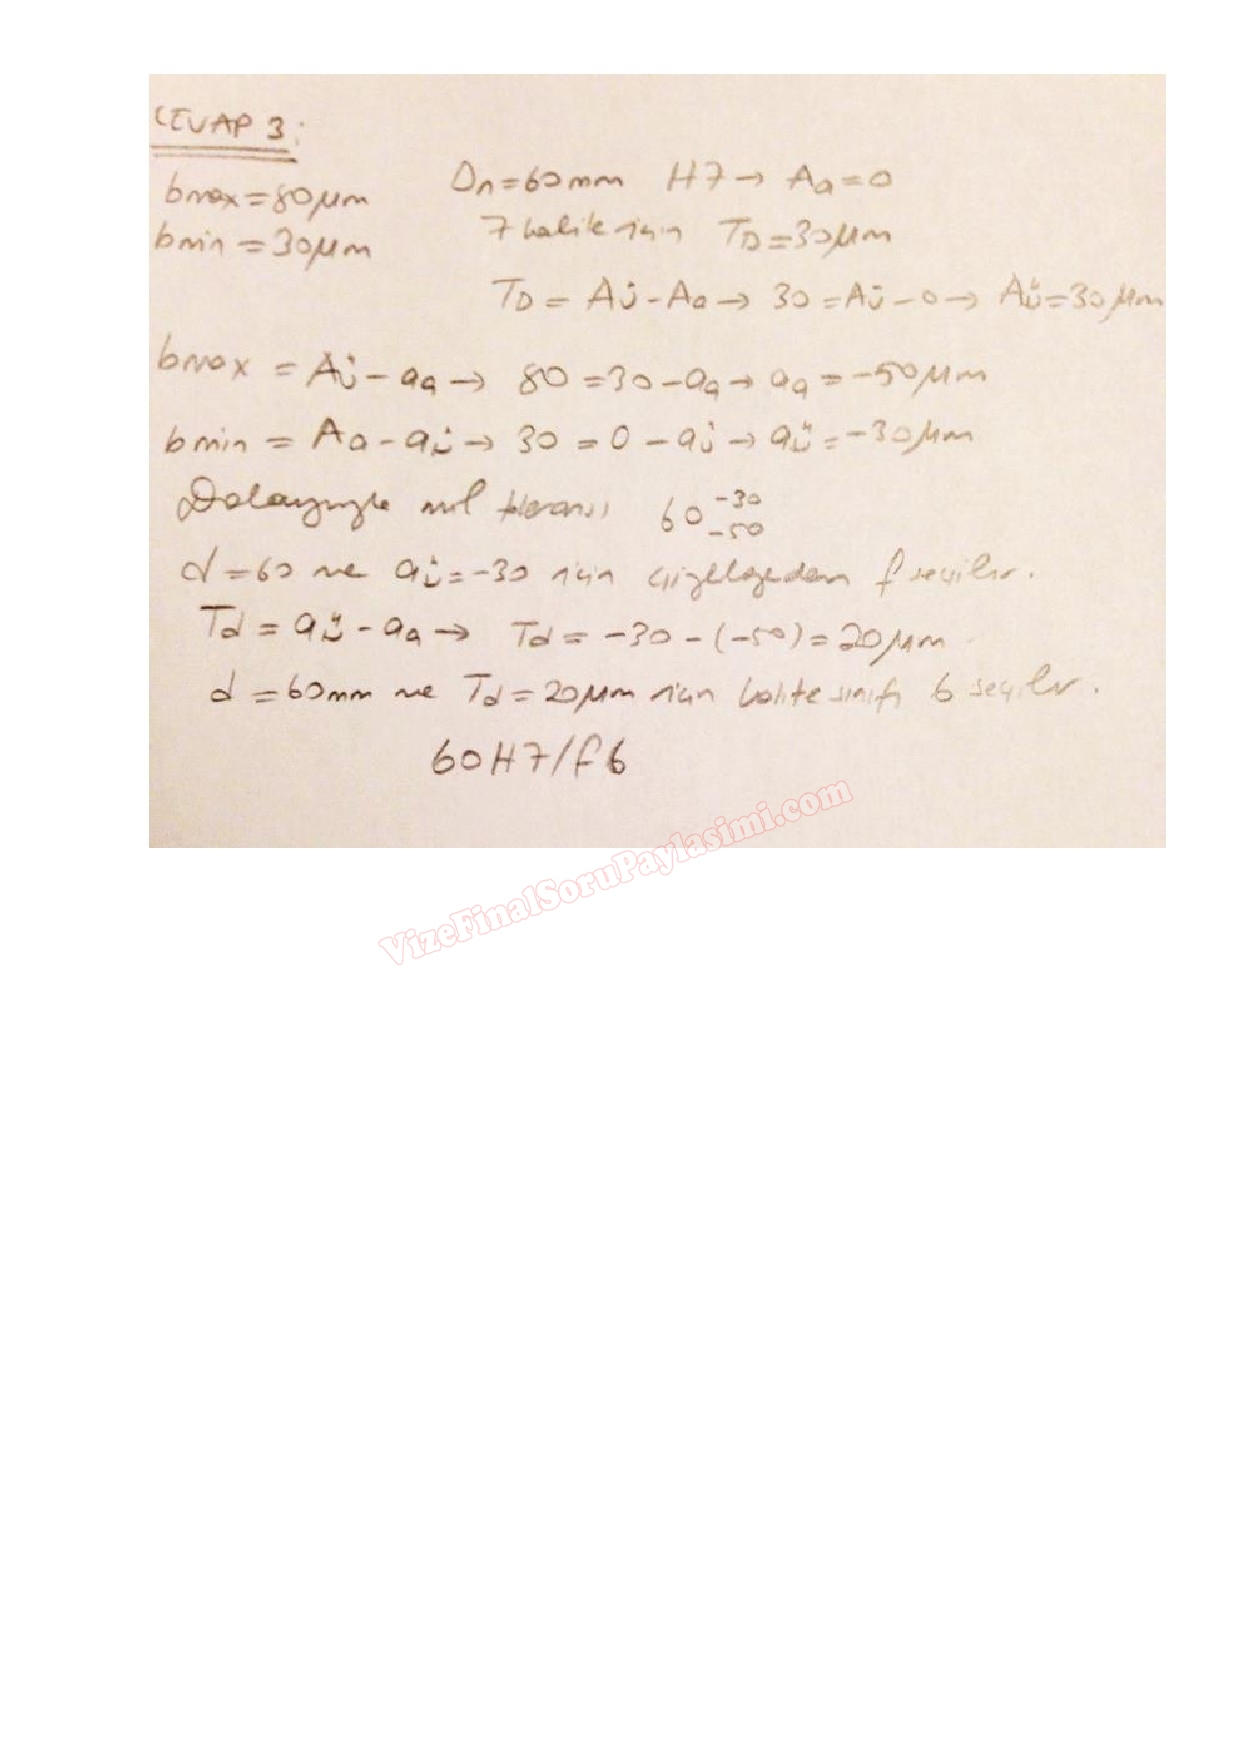 CEVAP 3:
bmax = 80μm
bmin = 30μm
Dn = 60mm H7 → Aa = 0
7 kalite için TD = 30μm
TD = Aü - Aa → 30 = Aü - 0 → Aü = 30μm
bmax = Aü - aa → 80 = 30 - aa → aa = -50μm
bmin = Aa - aü → 30 = 0 - aü → aü = -30μm
Dolayısıyla mil toleransı 60 -30 -50
d = 60 ve aü = -30 için çizelgeden f seçilir.
Td = aü - aa → Td = -30 - (-50) = 20μm
d = 60mm ve Td = 20μm için kalite sınıfı 6 seçilir.
60H7/f6
VizeFinalSoruPaylasimi.com